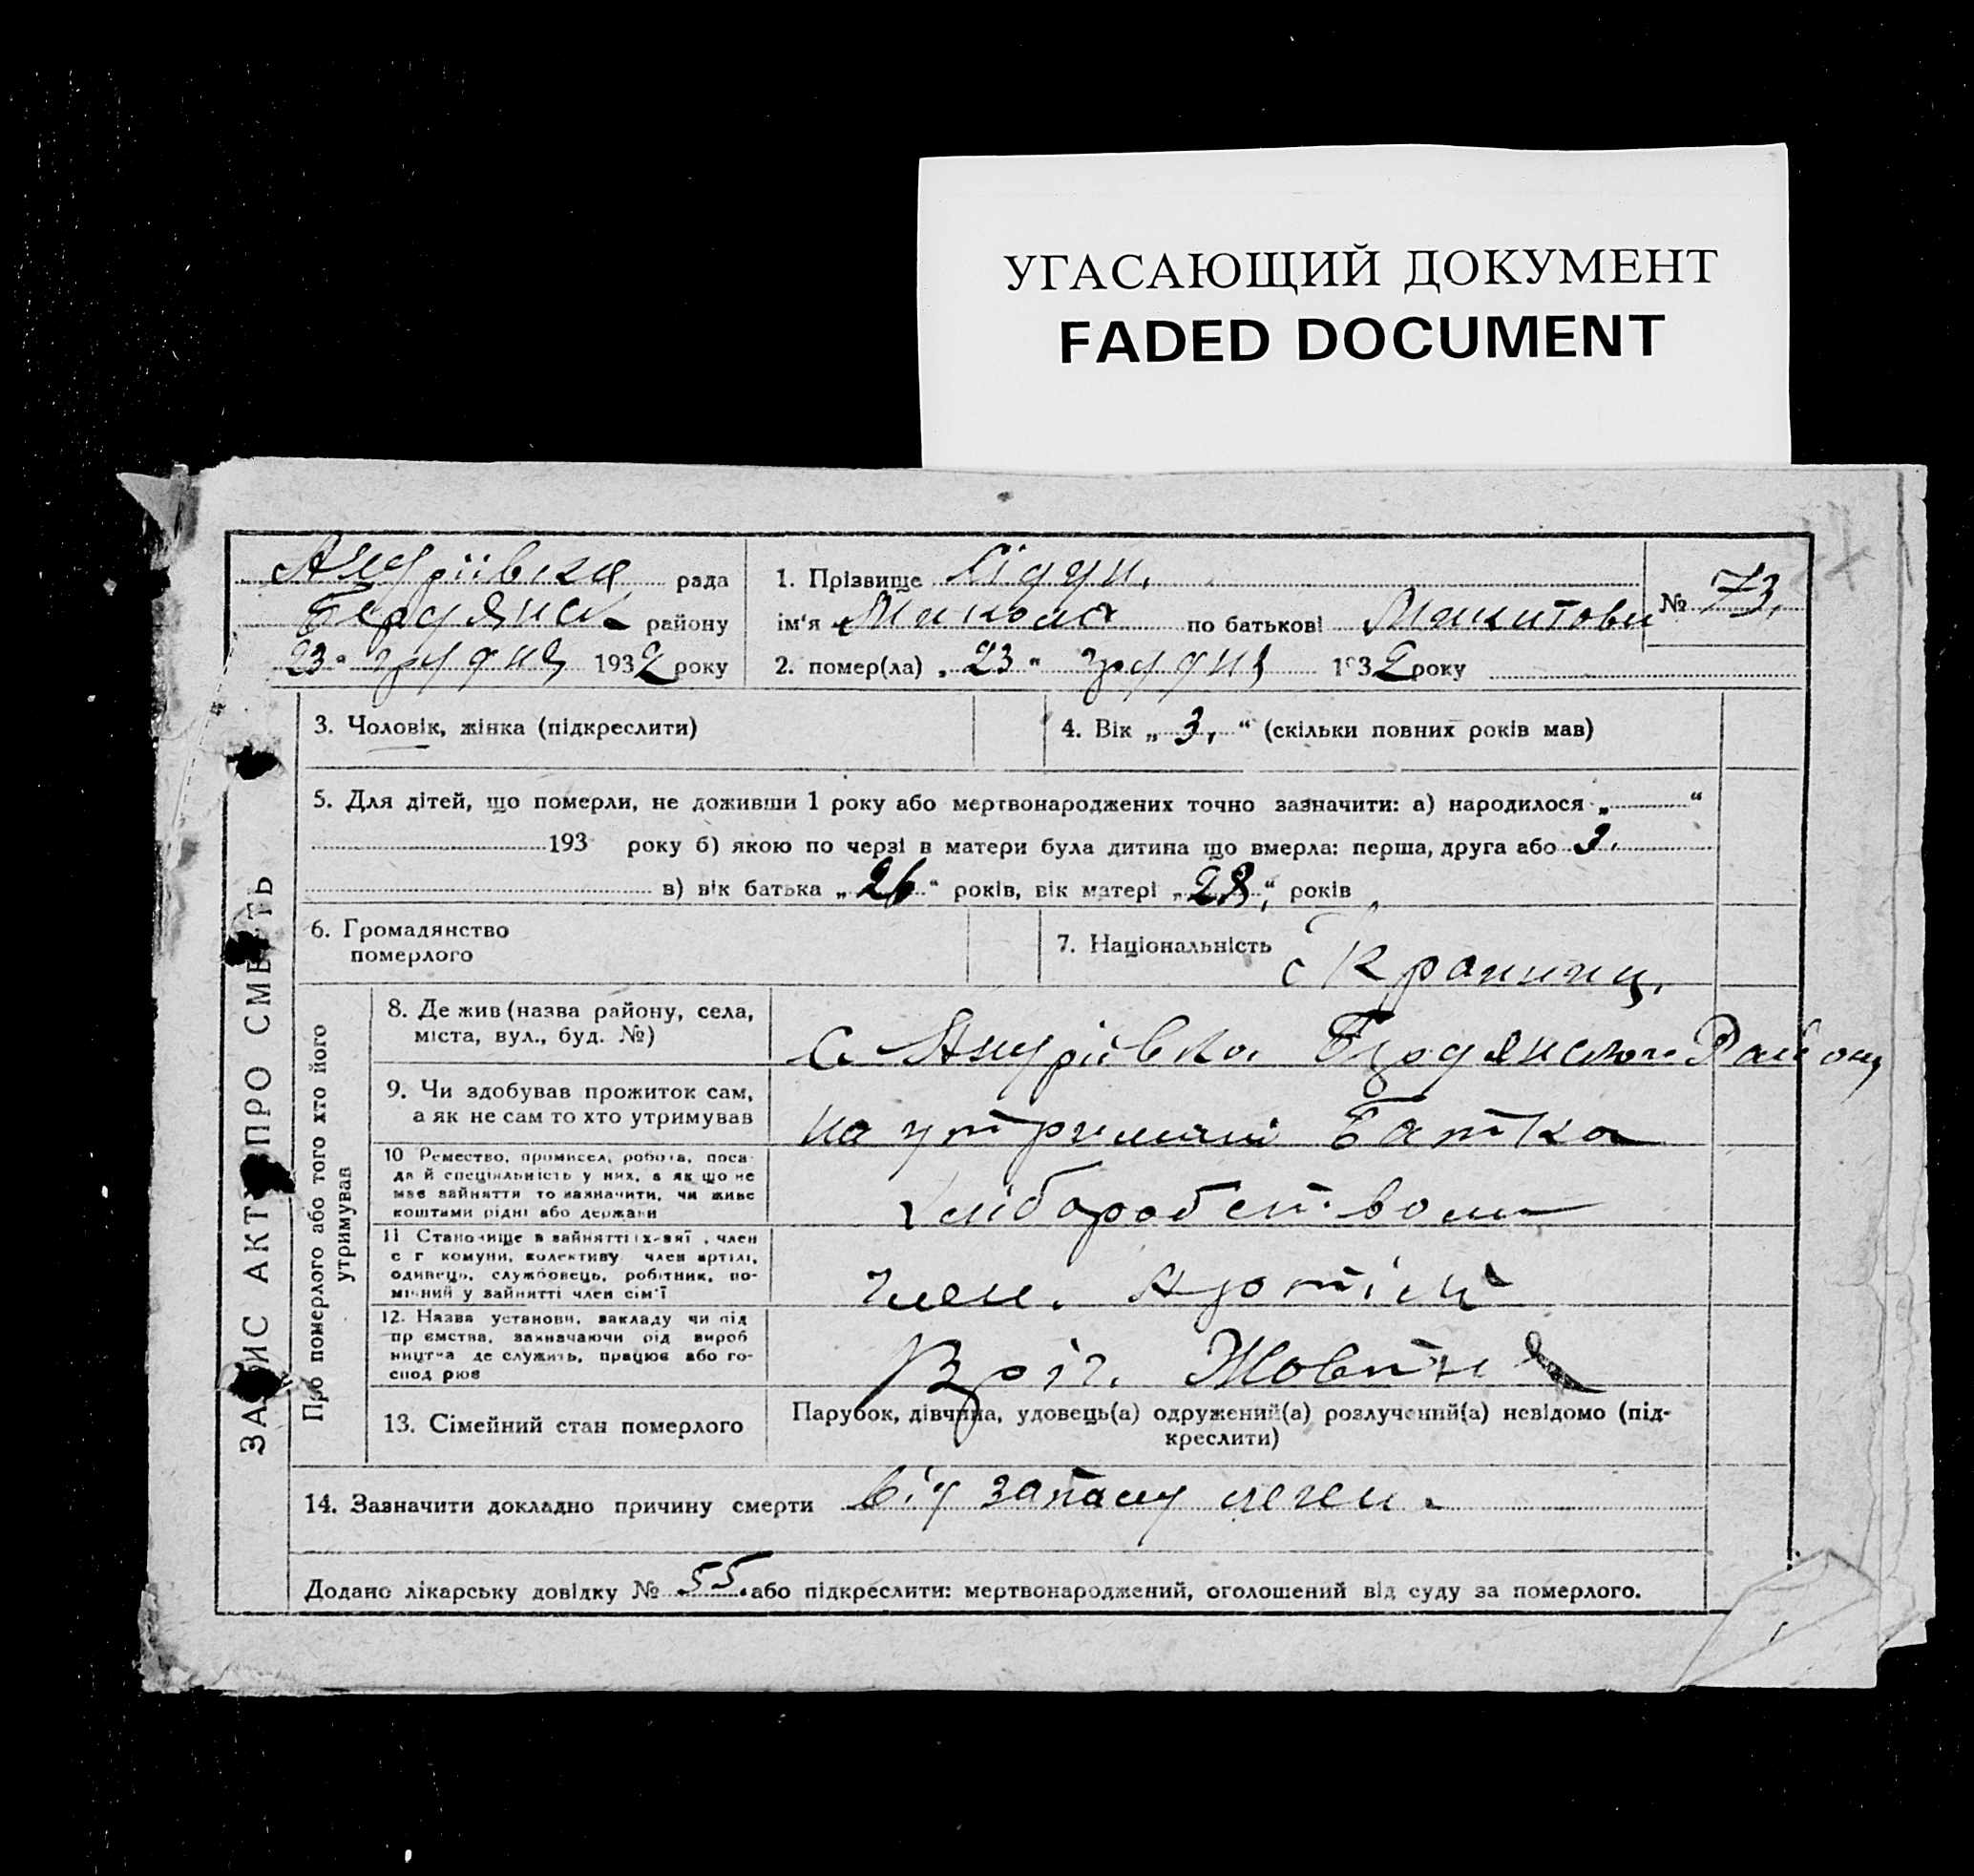 УГАСАЮЩИЙ ДОКУМЕНТ
FADED DOCUMENT
Андріівска рада
Бердянск району
23 " грудня 1932 року
1. Прізвище Лідун.
ім'я Микола по батькові Микитови
2. помер(ла) „ 23 " грудня 1932 року
№ 73,
3. Чоловік, жінка (підкреслити)
4. Вік „ 3, " (скільки повних років мав)
5. Для дітей, що померли, не доживши 1 року або мертвонароджених точно зазначити: а) народилося „ "
193 року б) якою по черзі в матери була дитина що вмерла: перша, друга або 3.
в) вік батька „ 26 " років, вік матері „ 28, " років
6. Громадянство
померлого
7. Національність Украинец.
ЗАПИС АКТУ ПРО СМЕРТЬ
Про померлого або того хто його
утримував
8. Де жив (назва району, села,
міста, вул., буд. №)
с. Андріівка. Бердянского Району
9. Чи здобував прожиток сам,
а як не сам то хто утримував
на утримані Батка
10 Ремество, промисел, робота, поса-
да й спеціяльність у них, а як що не
має зайняття то зазначити, чи живе
коштами рідні або держави
хліборобством
11 Становище в зайнятті , член
с г комуни, колективу член артілі,
одинець, службовець, робітник, по-
мічний у зайнятті член сім'ї
член. Артіли
12. Назва установи, закладу чи під
пр ємства, зазначаючи рід вироб
ництва де служить, працює або го-
спод рює
Жовтня
13. Сімейний стан померлого
Парубок, дівчина, удовець(а) одружений(а) розлучений(а) невідомо (під-
креслити)
14. Зазначити докладно причину смерти від запалу леген.
Додано лікарську довідку № 55. або підкреслити: мертвонароджений, оголошений від суду за померлого.